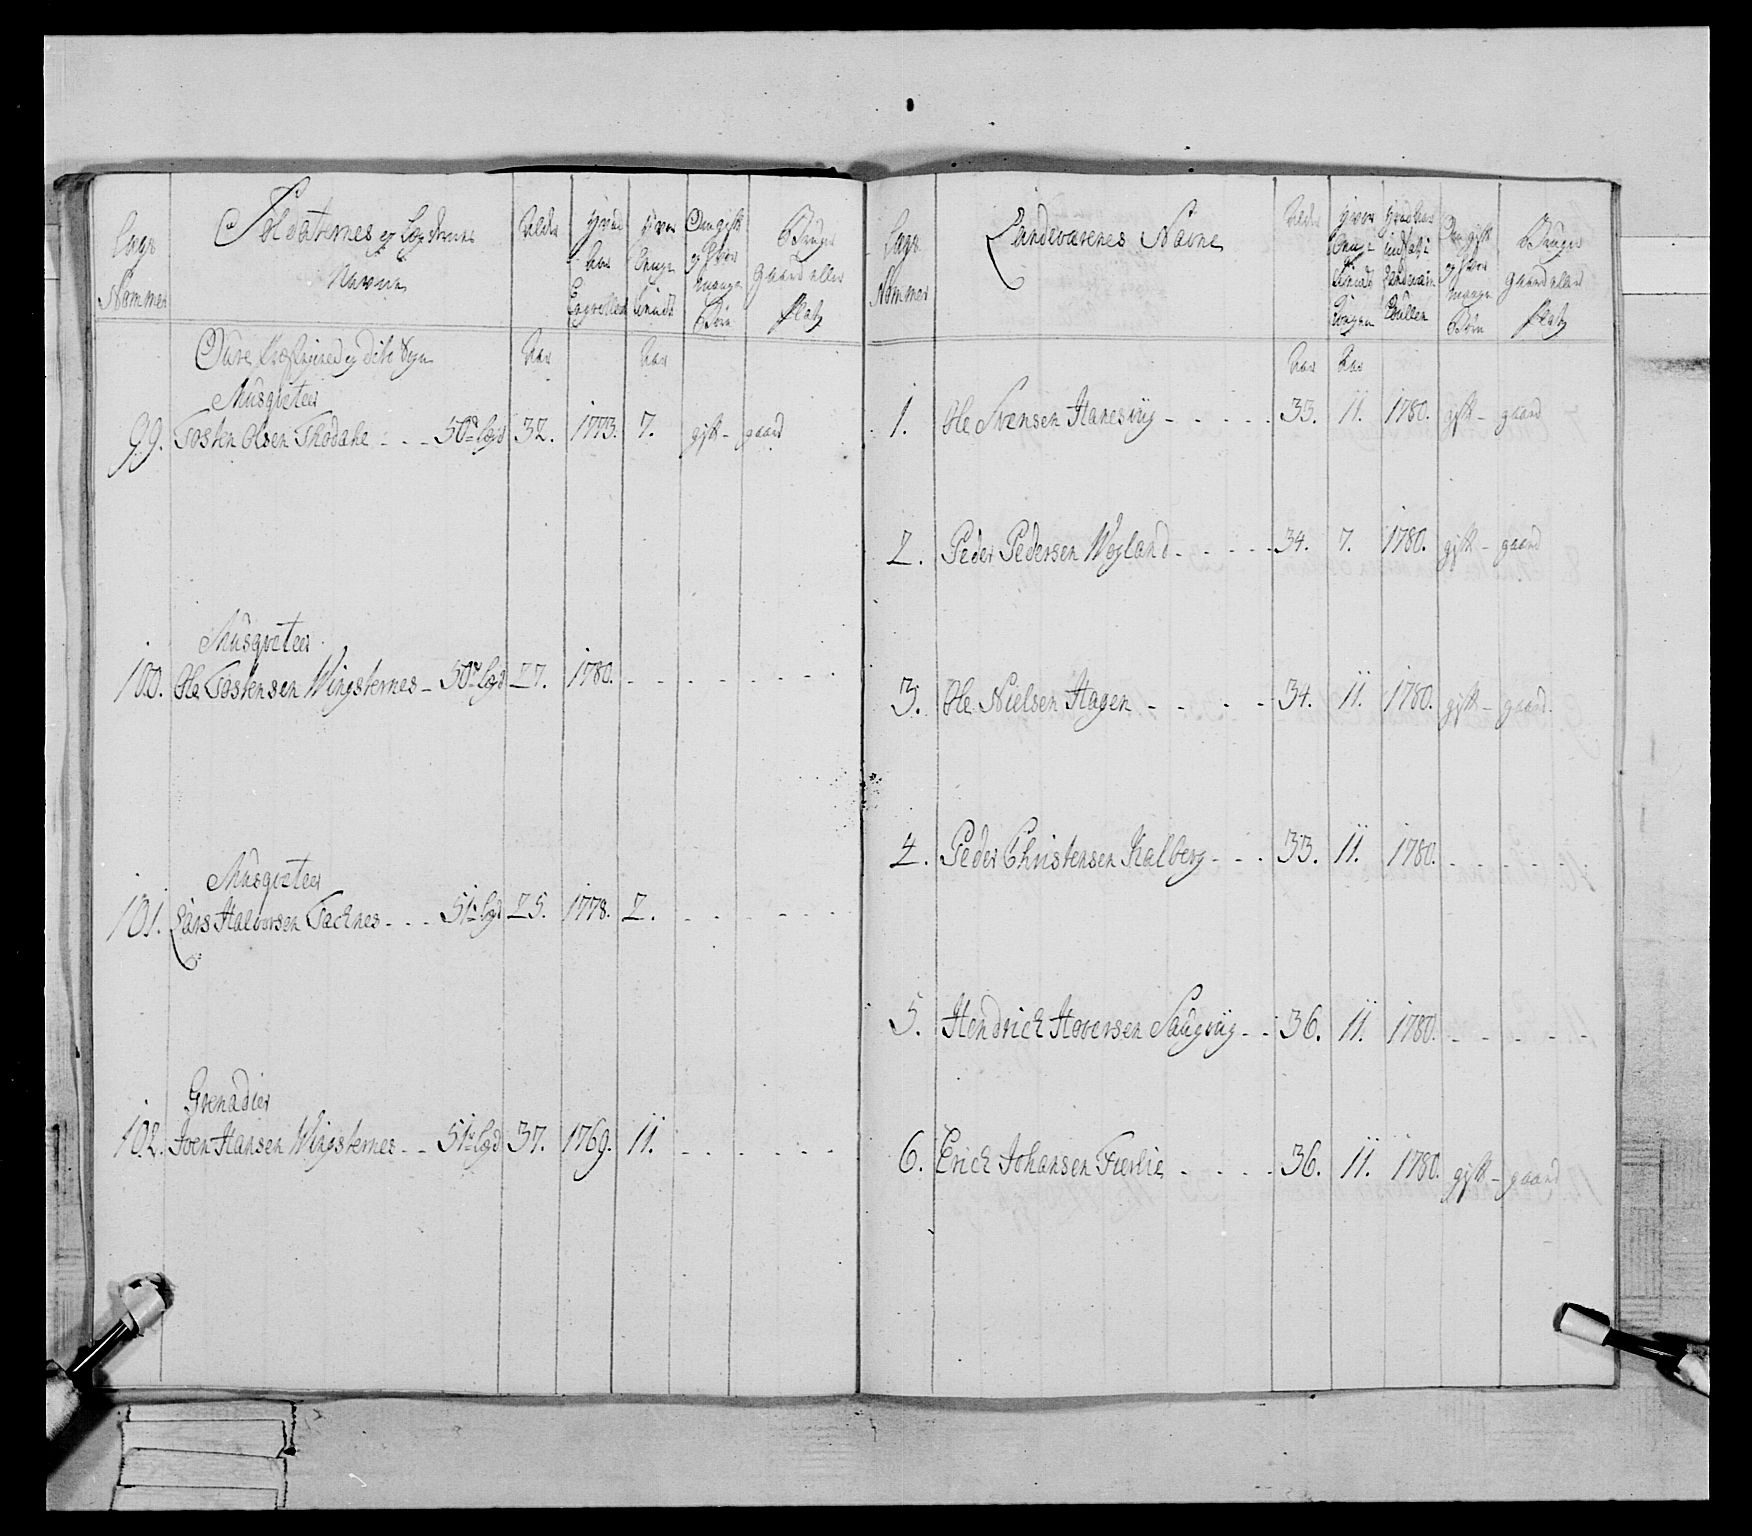 Lægs Nummer
Soldaternes og Lægdernes Navne
Alder
Hvad Aar Enrolleret
Hvor længe tient
Om gift og hvor mange Børn
Bruger Gaard eller Platz
Oure Præstegield og dito Sogn
Aar
Aar
Musqveteer
99. Tosten Olsen Thodahl - - - 50de Lægd 32. 1773. 7. gift - gaard
Musqveteer
100. Ole Tostensen Wingsternes - 50de Lægd 27. 1780. - - - - - - - -
Musqveteer
101. Lars Halvorsen Tacknes - - - 51de Lægd 25. 1778. 2. - - - - -
Grenadier
102. Iver Hansen Wingsternes - - 51de Lægd 37. 1769. 11. - - - - - -
Lægs Nummer
Landeværenes Navne
Alder
Hvor længe tient Kongen
Hvad Aar indsat i Landeværn Rullen
Om gift og hvor mange Børn
Bruger Gaard eller Platz
Aar
Aar
1. Ole Svensen Hanesvig - - - - - 35. 11. 1780. gift - gaard
2. Peder Pedersen Wegland - - - - - 34. 7. 1780. gift - gaard
3. Ole Nielsen Hagen - - - - - 34. 11. 1780. gift - gaard.
4. Peder Christensen Kalberg - - - 33. 11. 1780. - - - - -
5. Hendrick Hoversen Saugvig - - 36. 11. 1780. - - - - -
6. Erick Johansen Fuerlie - - - - 36. 11. 1780. gift - gaard